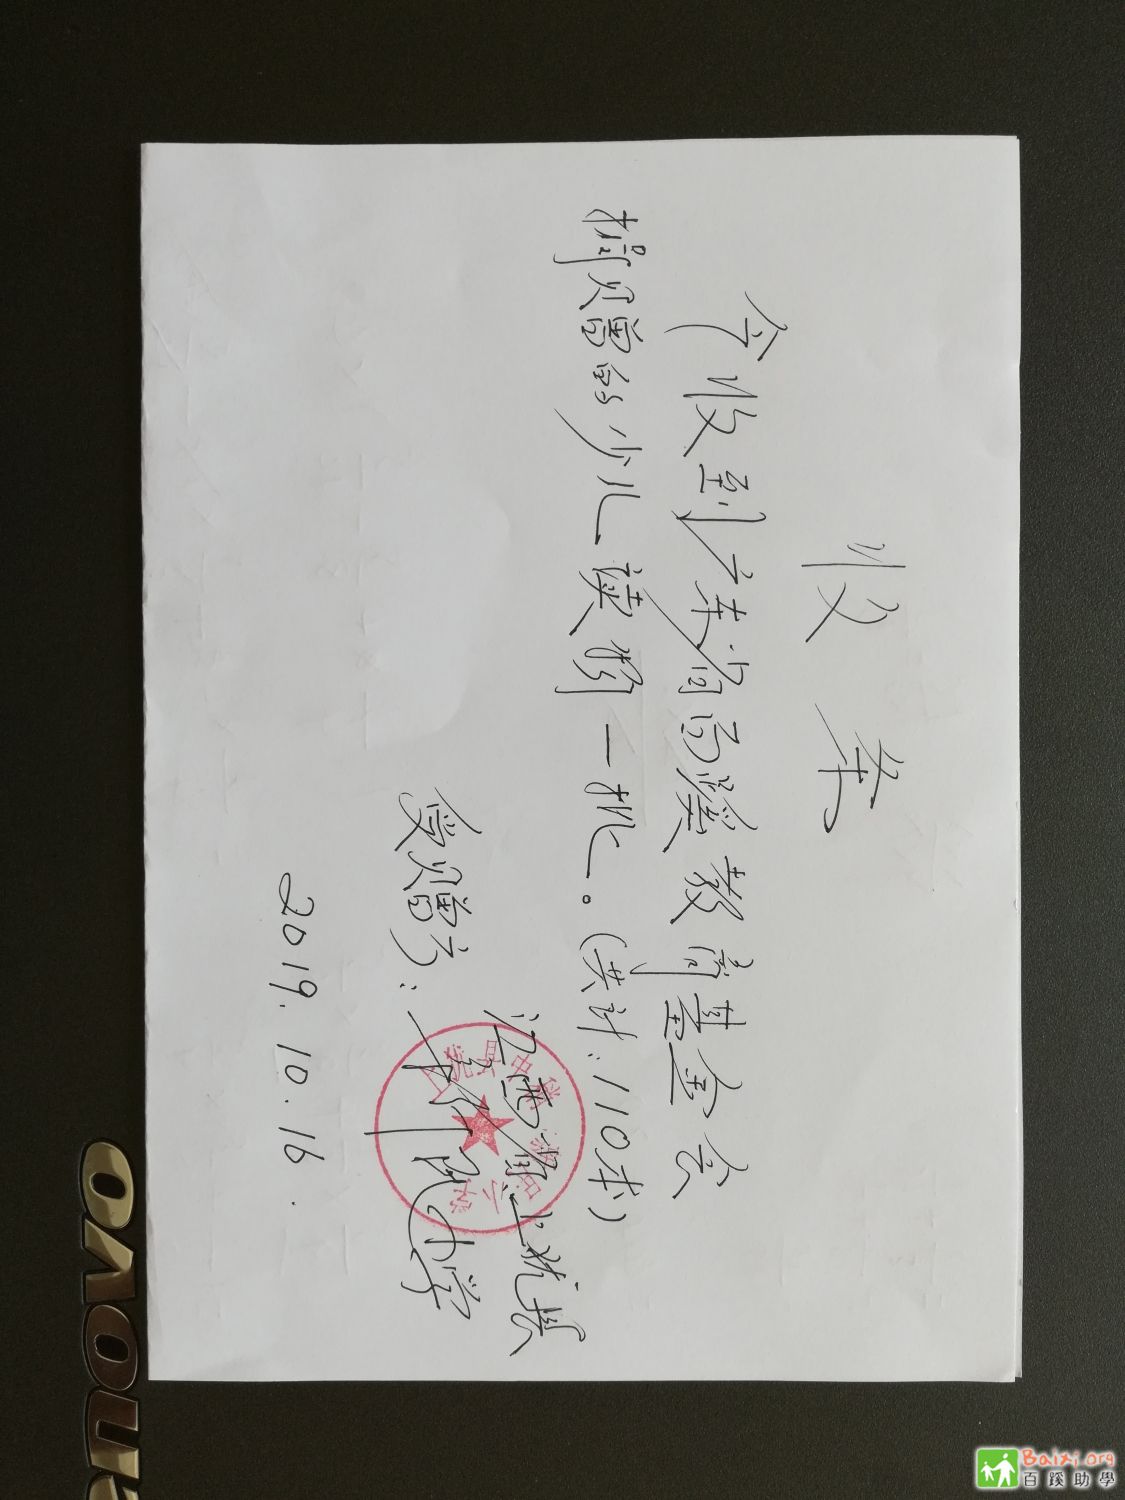 收条
今收到广东省百蹊教育基金会
捐赠的少儿读物一批。(共计:110本)
受赠方:江西省上犹县
中稍
小学
2019.10.16.
enovo
Baixi.org
百蹊助學